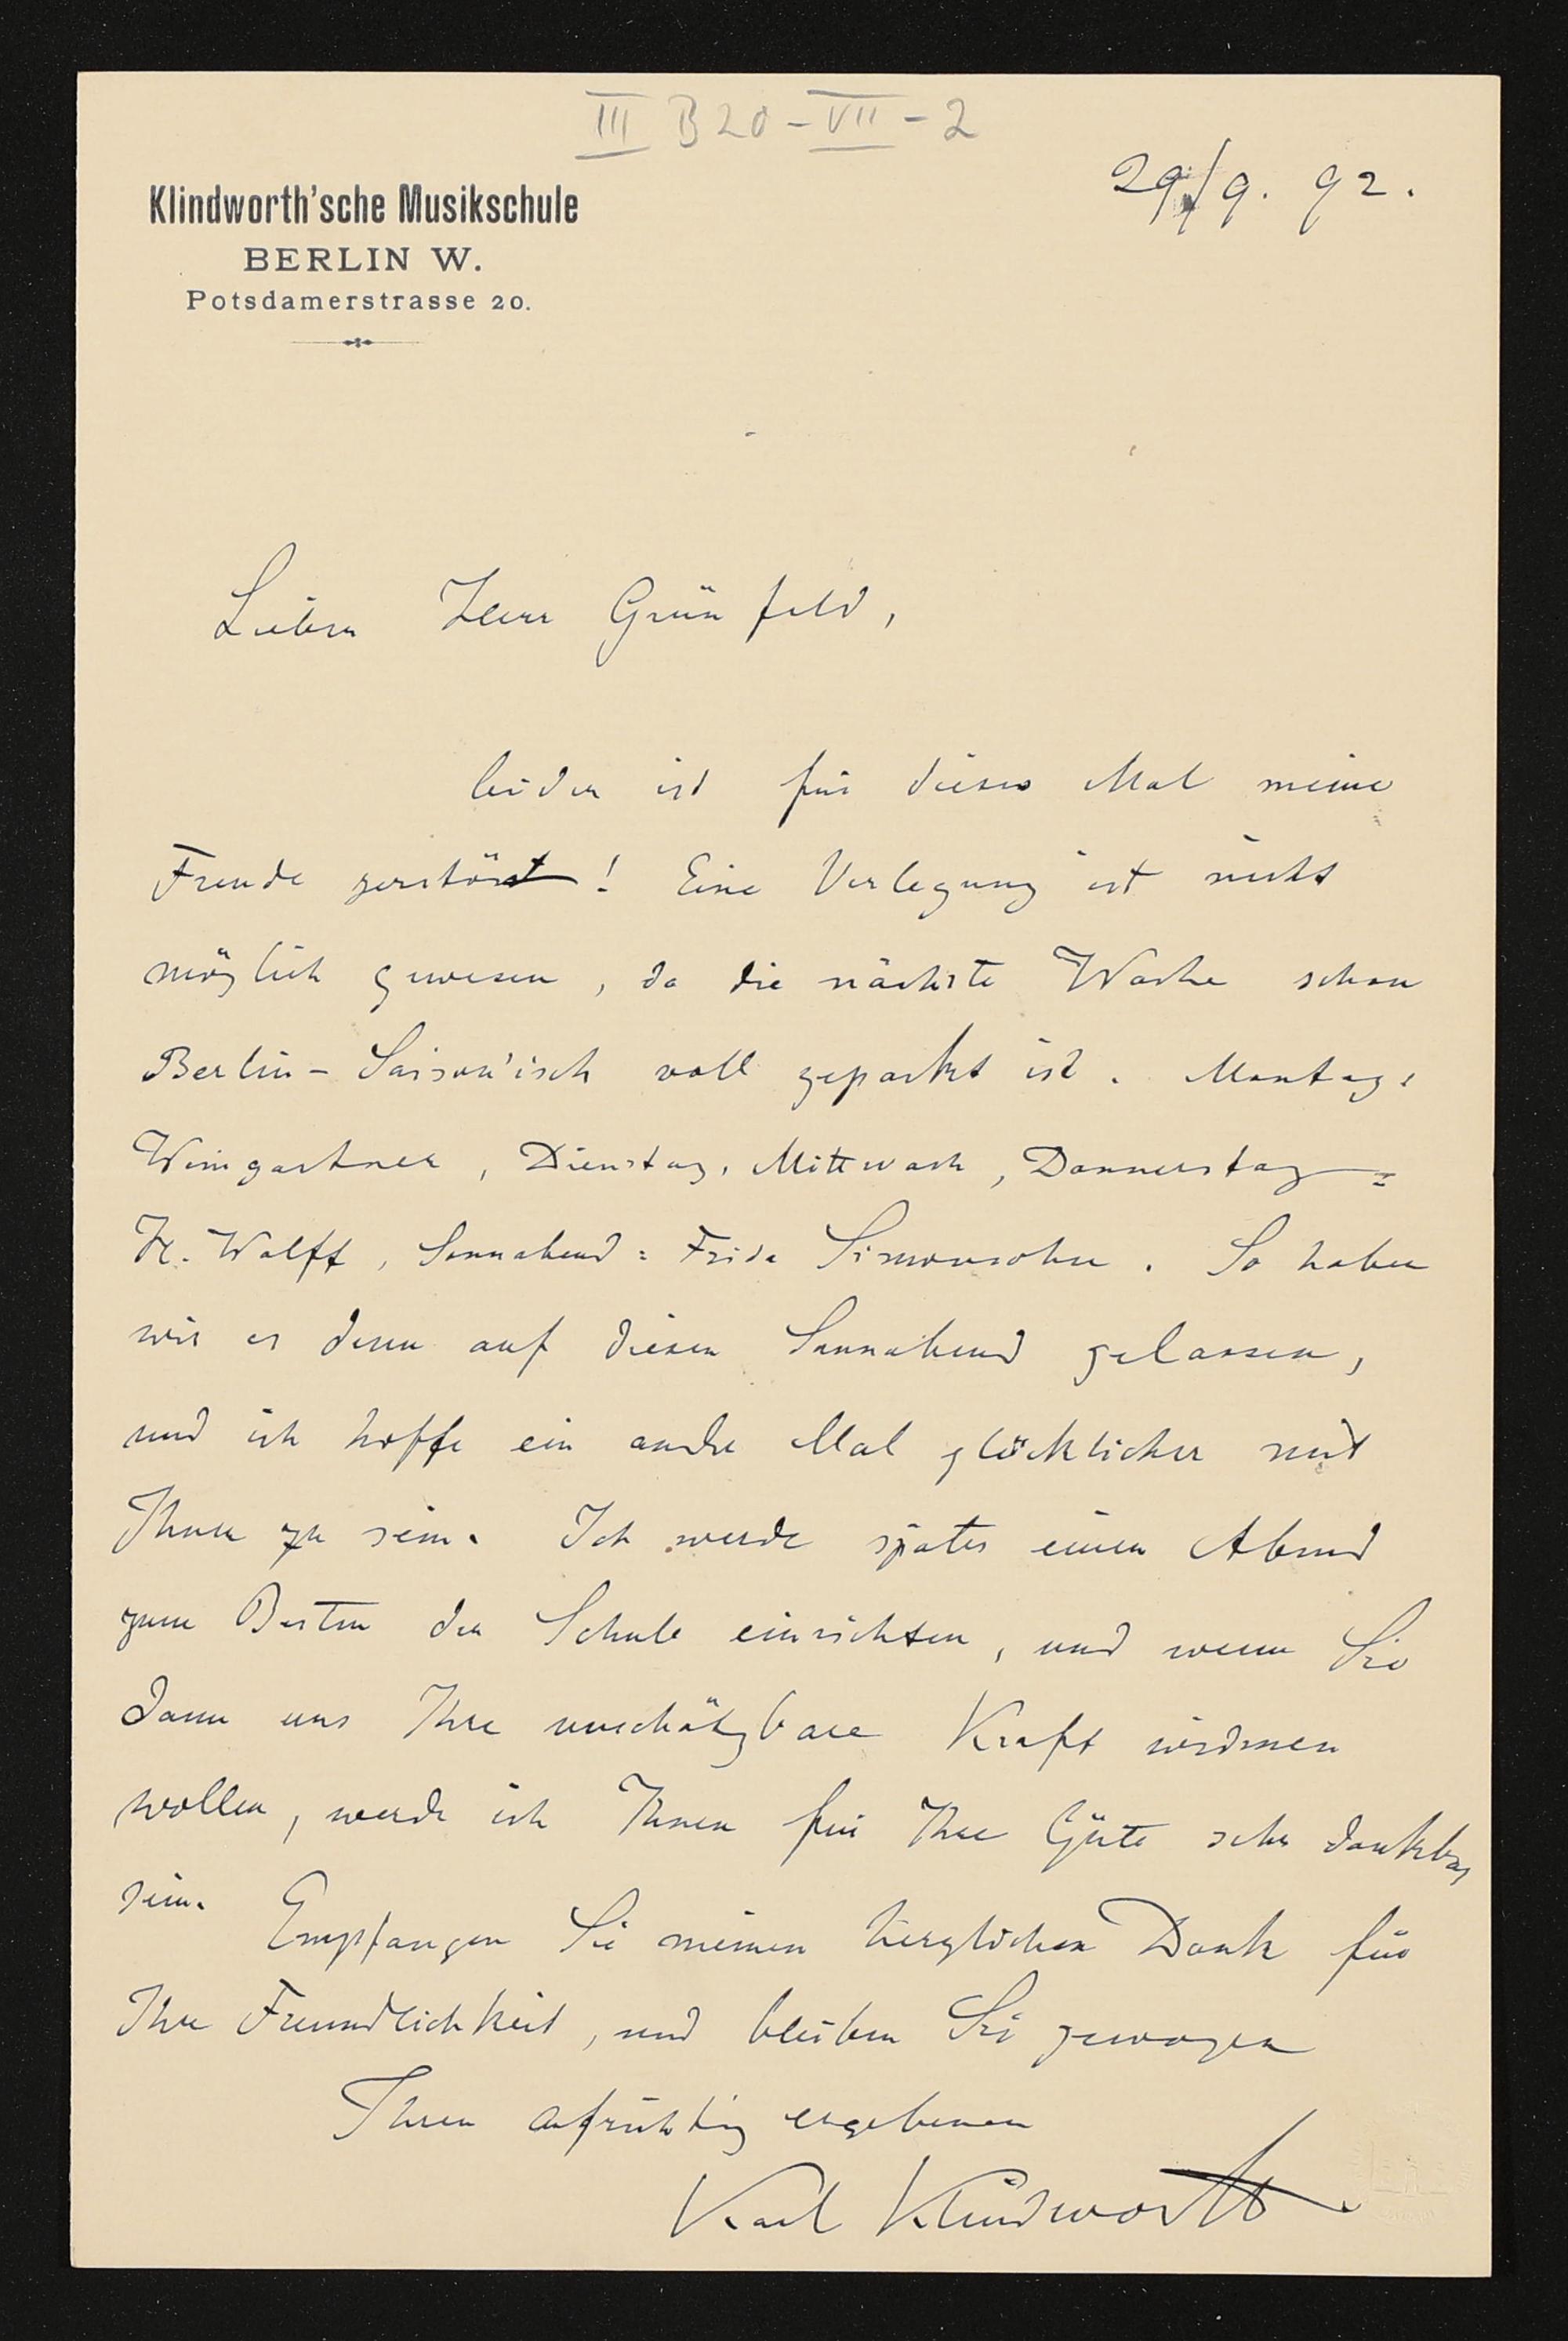 III B 20 - VII - 2
29/9. 92.
Klindworth'sche Musikschule
BERLIN W.
Potsdamerstrasse 20.
Lieber Herr Grünfeld,
leider ist für dieses Mal meine
Freude zerstört! Eine Verlegung ist nicht
möglich gewesen, da die nächste Woche schon
Berlin-Saison'isch voll gepackt ist. Montag:
Weingartner, Dienstag, Mittwoch, Donnerstag =
H. Wolff, Sonnabend = Frida Simonsohn. So haben
wir es denn auf diesen Sonnabend gelassen,
und ich hoffe ein andre Mal glücklicher mit
Ihnen zu sein. Ich werde später einen Abend
zum Besten der Schule einrichten, und wenn Sie
dann uns Ihre unschätzbare Kraft widmen
wollen, werde ich Ihnen für Ihre Güte sehr dankbar
sein. Empfangen Sie meinen herzlichen Dank für
Ihre Freundlichkeit, und bleiben Sie gewogen
Ihrem aufrichtig ergebenen
Karl Klindworth